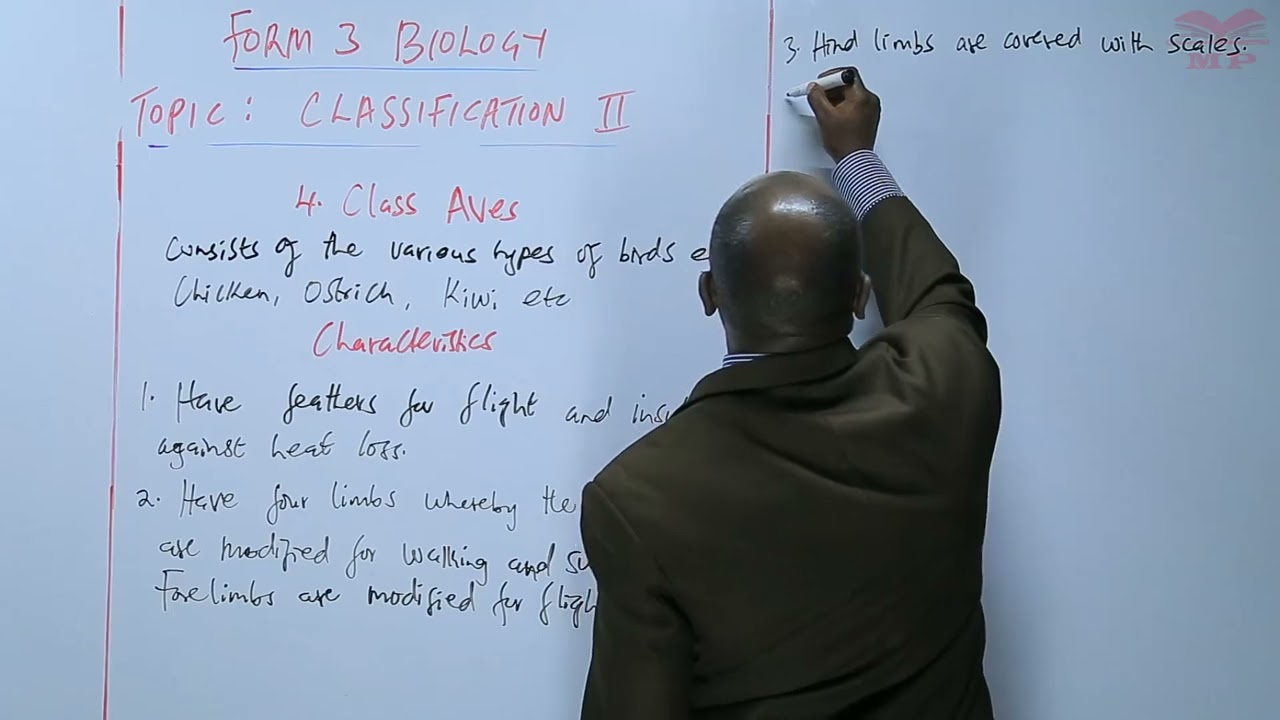 FORM 3 BIOLOGY
TOPIC: CLASSIFICATION II
4. Class Aves
Consists of the various types of birds
Chicken, Ostrich, Kiwi etc
Characteristics
1. Have feathers for flight and
against heat loss.
2. Have four limbs whereby the
are modified for walking and
Forelimbs are modified for
3. Hind limbs are covered with scales.
MP